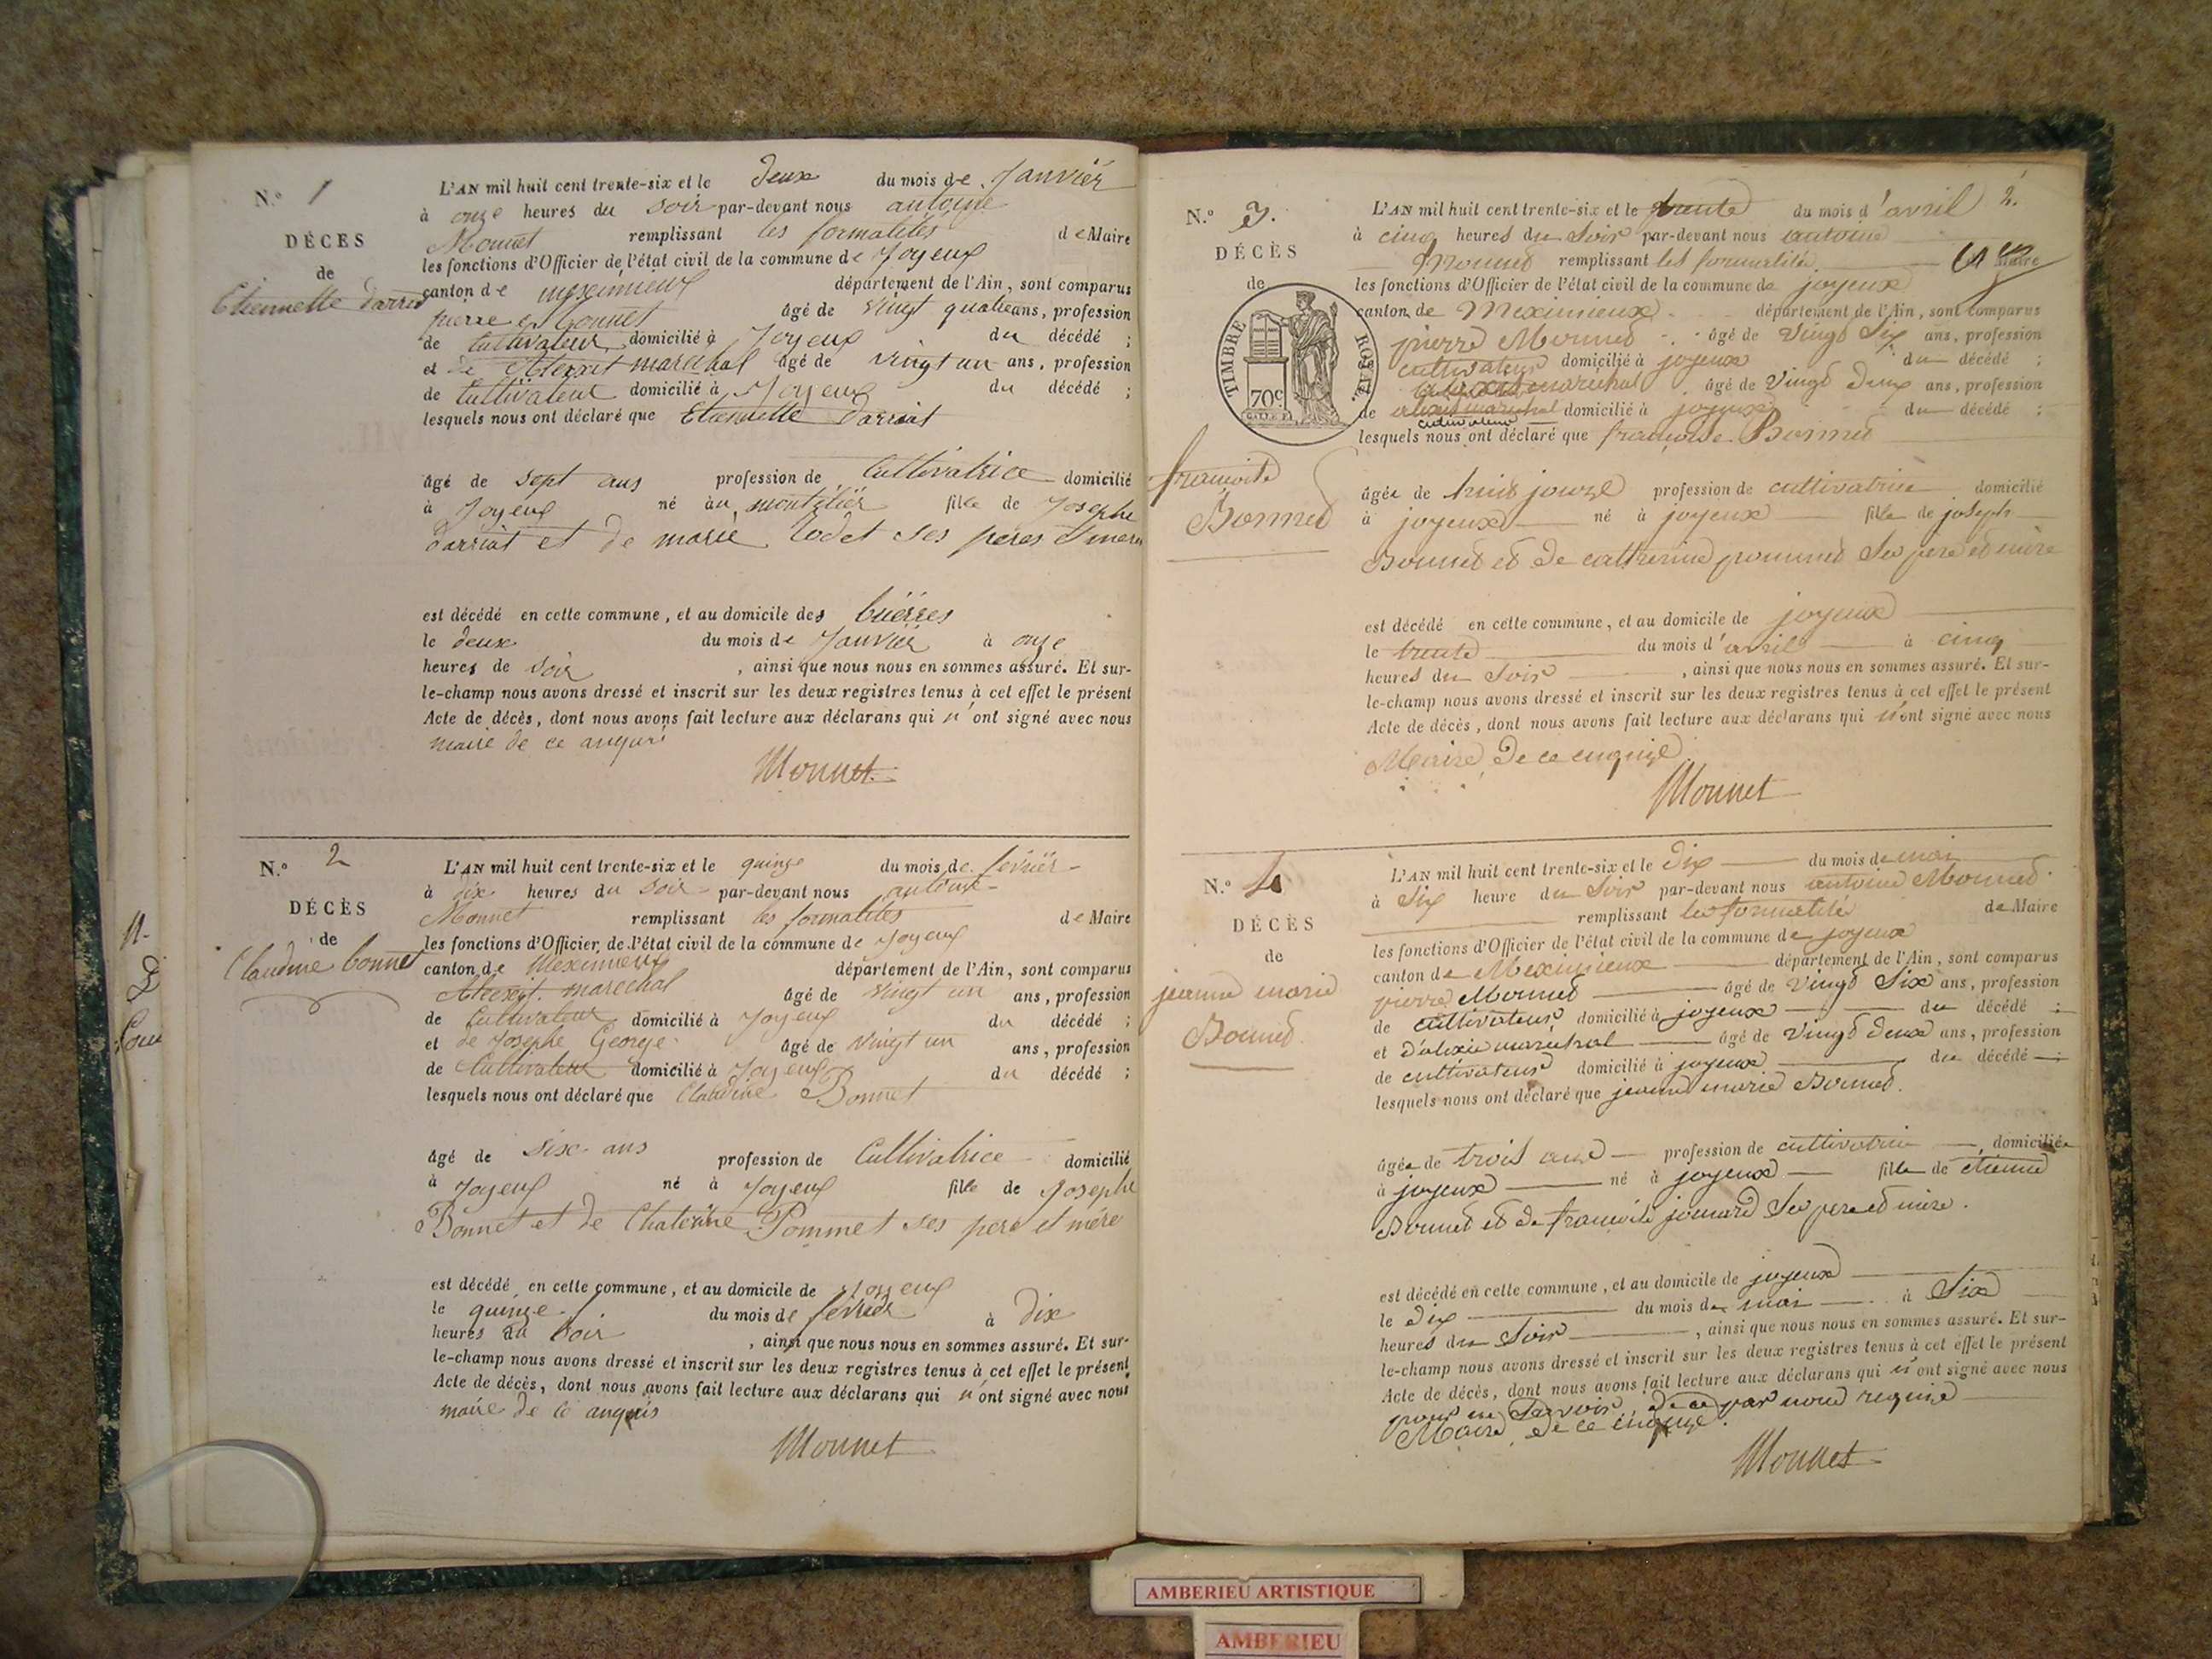 N.º 1
DÉCÈS
de
Etiennette darriat
L'AN mil huit cent trente-six et le deux du mois de Janvier
à onze heures du soir par-devant nous antoine
Monnet remplissant les formalités de Maire
les fonctions d'Officier de l'état civil de la commune de Joyeux
canton de meximieux département de l'Ain, sont comparus
pierre Bonnet âgé de vingt quatre ans, profession
de Cultivateur domicilié à Joyeux du décédé ;
et de Alexist marechal âgé de vingt un ans, profession
de Cultivateur domicilié à Joyeux du décédé ;
lesquels nous ont déclaré que Etiennette darriat
âgé de sept ans profession de Cultivatrice domicilié
à Joyeux né au montelier fille de Josephe
darriat et de marie Rodet ses peres et mere
est décédé en cette commune, et au domicile des
le deux du mois de Janvier à onze
heures de soir , ainsi que nous nous en sommes assuré. Et sur-
le-champ nous avons dressé et inscrit sur les deux registres tenus à cet effet le présent
Acte de décès, dont nous avons fait lecture aux déclarans qui n'ont signé avec nous
maire de ce anquis
Monnet
N.º 2
DÉCÈS
de
Claudine bonnet
L'AN mil huit cent trente-six et le quinze du mois de fevrier
à dix heures du soir par-devant nous antoine
Monnet remplissant les formalités de Maire
les fonctions d'Officier de l'état civil de la commune de Joyeux
canton de Meximieux département de l'Ain, sont comparus
Alexist marechal âgé de vingt un ans, profession
de Cultivateur domicilié à Joyeux du décédé ;
et de Josephe George âgé de vingt un ans, profession
de Cultivateur domicilié à Joyeux du décédé ;
lesquels nous ont déclaré que Claudine Bonnet
âgé de sixe ans profession de Cultivatrice domicilié
à Joyeux né à Joyeux fille de Josephe
Bonnet et de Chaterine Pommet ses pere et mére
est décédé en cette commune, et au domicile de Joyeux
le quinze du mois de fevrier à dix
heures du soir , ainsi que nous nous en sommes assuré. Et sur-
le-champ nous avons dressé et inscrit sur les deux registres tenus à cet effet le présent
Acte de décès, dont nous avons fait lecture aux déclarans qui n'ont signé avec nous
maire de ce anquis
Monnet
2.
N.º 3.
DÉCÈS
de
TIMBRE ROYAL
70c
francoise
Bonnet
L'AN mil huit cent trente-six et le trente du mois d'avril
à cinq heures du soir par-devant nous antoine
Monnet remplissant les formalités Maire
les fonctions d'Officier de l'état civil de la commune de joyeux
canton de Meximieux département de l'Ain, sont comparus
pierre Monnet âgé de vingt Six ans, profession
cultivateur domicilié à joyeux du décédé ;
marechal âgé de vingt deux ans, profession
de alexis marechal domicilié à joyeux du décédé ;
cultivateur
lesquels nous ont déclaré que francoise Bonnet
âgée de huit jours profession de cultivatrice domicilié
à joyeux né à joyeux fille de joseph
Bonnet et de catherine pommet Ses pere et mère
est décédé en cette commune, et au domicile de joyeux
le trente du mois d'avril à cinq
heures du Soir , ainsi que nous nous en sommes assuré. Et sur-
le-champ nous avons dressé et inscrit sur les deux registres tenus à cet effet le présent
Acte de décès, dont nous avons fait lecture aux déclarans qui n'ont signé avec nous
Maire de ce enquise
Monnet
N.º 4
DÉCÈS
de
jeanne marie
Bonnet
L'AN mil huit cent trente-six et le Dix du mois de mai
à Six heure du Soir par-devant nous antoine Monnet
remplissant les formalités de Maire
les fonctions d'Officier de l'état civil de la commune de joyeux
canton de Meximieux département de l'Ain, sont comparus
pierre Monnet âgé de vingt Six ans, profession
de cultivateur domicilié à joyeux du décédé ;
et d'alexis marechal âgé de vingt deux ans, profession
de cultivateur domicilié à joyeux du décédé ;
lesquels nous ont déclaré que jeanne marie Bonnet.
âgée de trois ans profession de cultivatrice domiciliée
à joyeux né à joyeux fille de étienne
Bonnet et de francoise jomard Ses pere et mère.
est décédé en cette commune, et au domicile de joyeux
le dix du mois de mai à Six
heures du Soir , ainsi que nous nous en sommes assuré. Et sur-
le-champ nous avons dressé et inscrit sur les deux registres tenus à cet effet le présent
Acte de décès, dont nous avons fait lecture aux déclarans qui n'ont signé avec nous
pour ne Savoir de ce par nous requise
Maire de ce enquise.
Monnet
AMBERIEU ARTISTIQUE
AMBERIEU